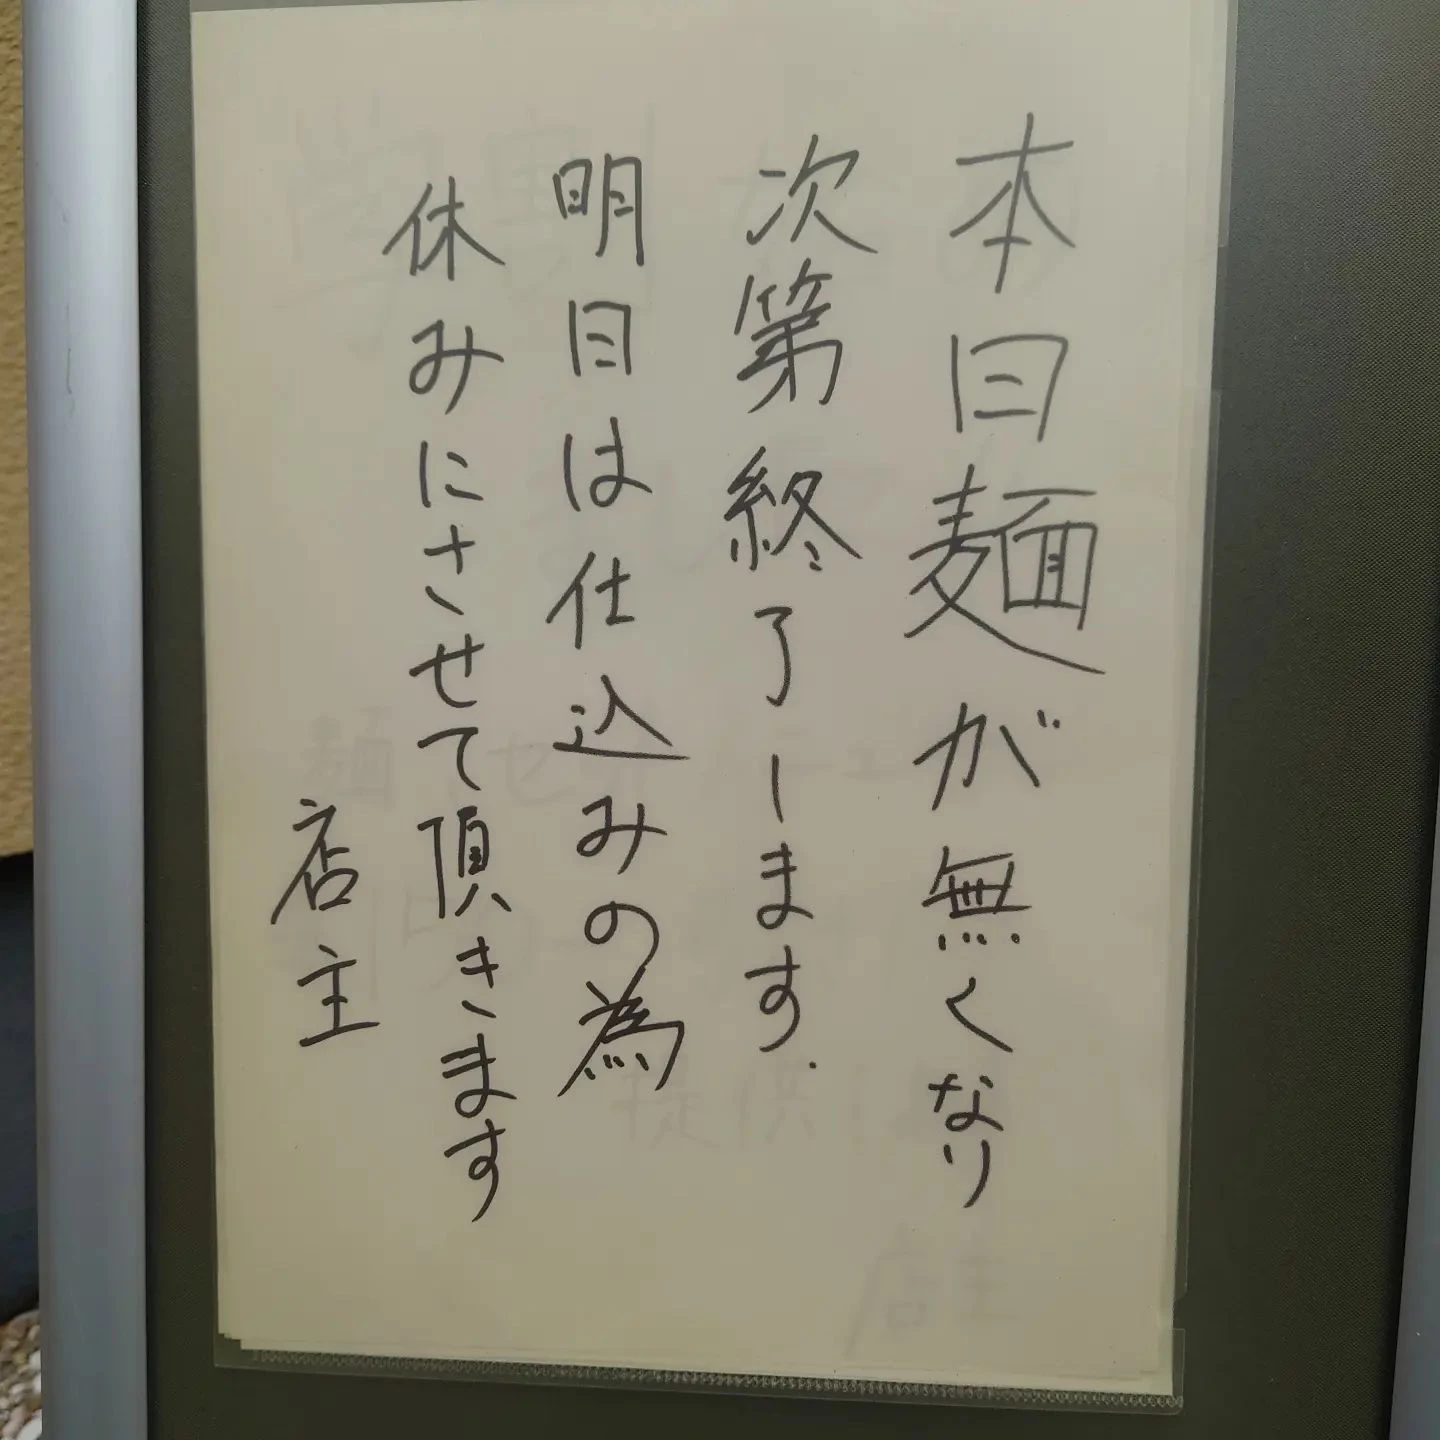 本日麺が無くなり
次第終了します.
明日は仕込みの為
休みにさせて頂きます
店主